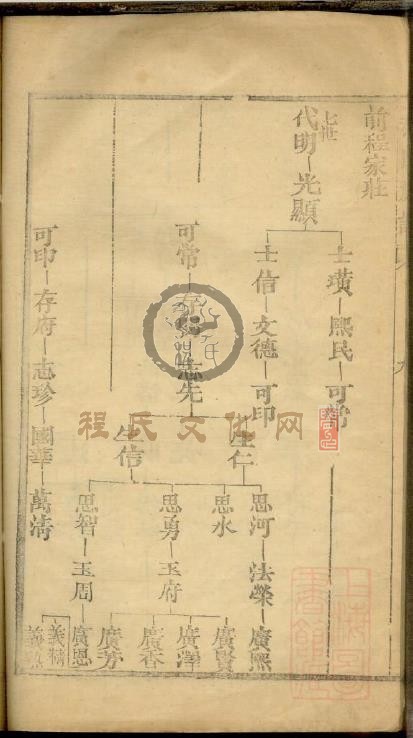 前程家莊
七世
代明—光顯
士璜—熙民—可常
士信—文德—可印
可常—存 —志先
生仁
生信
思河—法榮—廣熙
思水
思勇—玉府
思智—玉周
廣賢
廣澤
廣香
廣芳
廣恩
義精
可印—存府—志珍—國華—萬清
程氏文化网